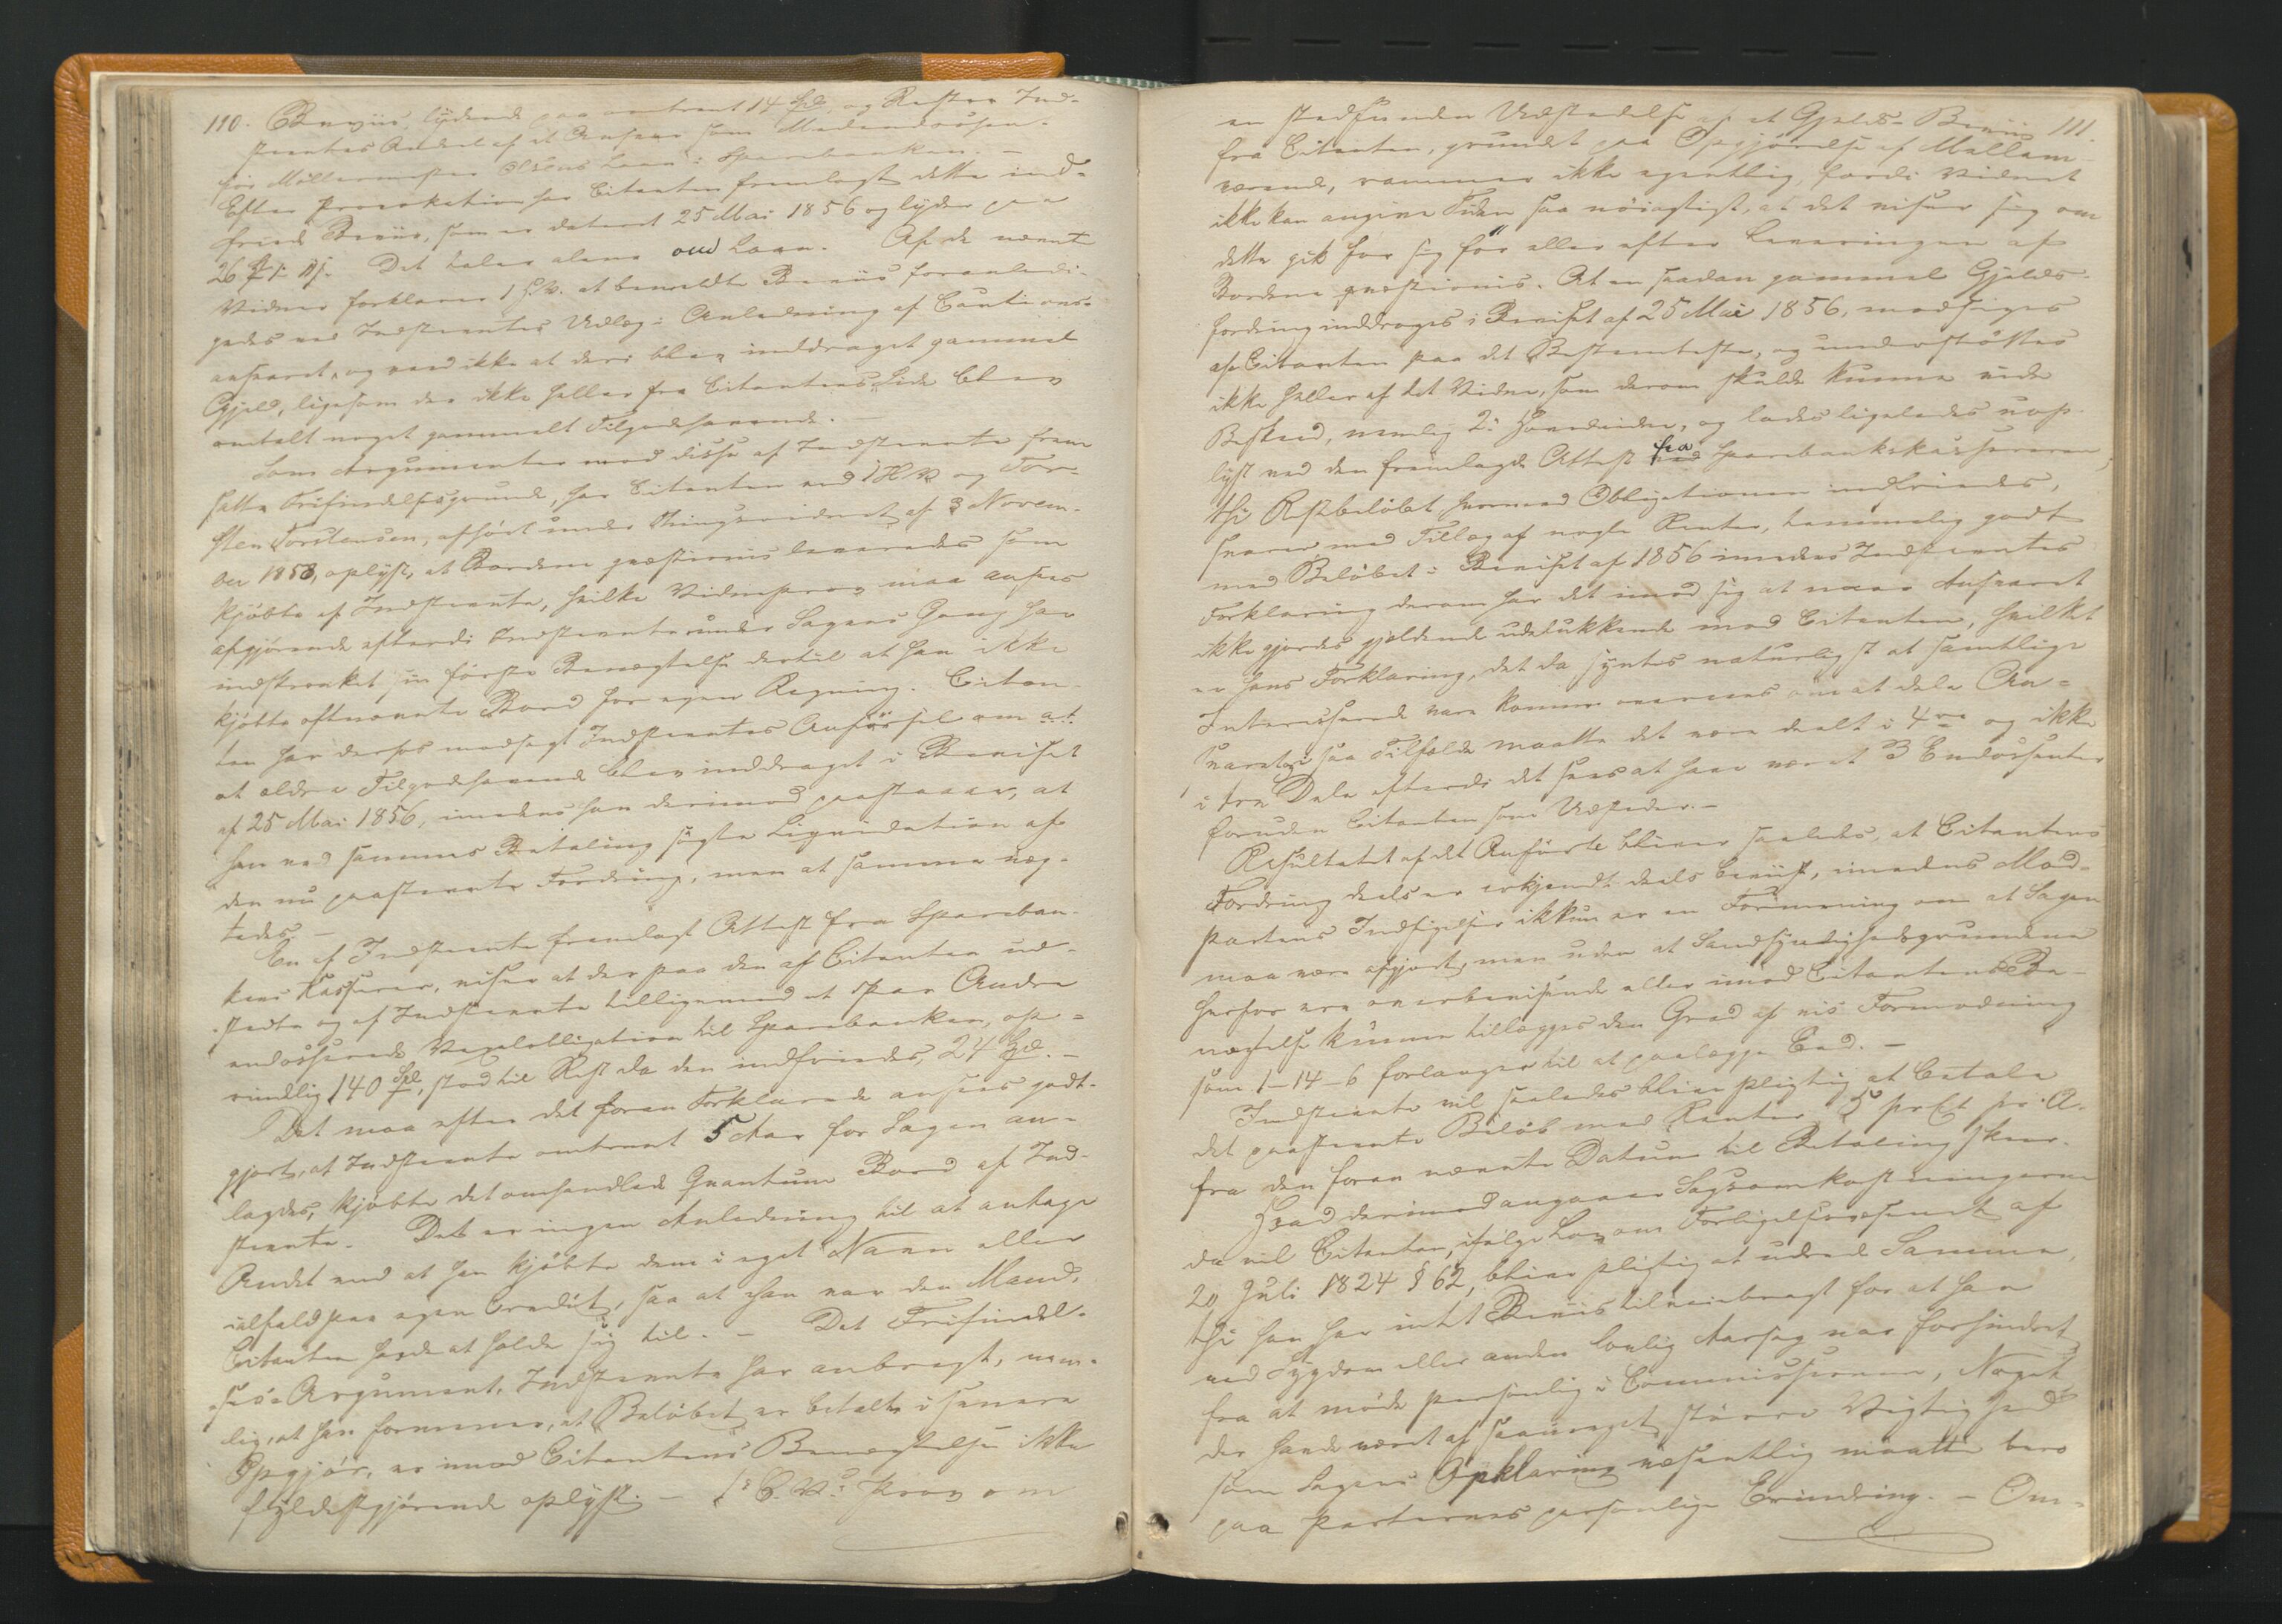 110. Beviis, lydende paa omtrent 14 Spd, og Resten Ind-
stevntes Andel af et Ansvar som Medendossen-
for Møllermester Laan i Sparebanken. –
Efter Provokation har Citanten fremlagt dette ind-
friede Beviis, som er dateret 25 Mai 1856 og lyder paa
26 Det taler alene om Laan. Af de nævnte
Vidner forklarer 1 S.V. at bemeldte Beviis foranledi-
gedes ved Indstevntes Udlæg i Anledning af Cautions-
ansvaret, og veed ikke at deri blev inddraget gammel
Gjeld, ligesom der ikke heller fra Citantens Side blev
omtalt noget gammelt Tilgodehavende. –
Som Argumenter mod disse af Indstevnte frem
satte Frifindelsesgrunde, har Citanten ved 1 H.V. og Tor-
sten Torstensen, afhørt under Thingsvidnet af 3 Novem-
ber 1858, oplyst, at Bordene qvæstionis leveredes som
kjøbte af Indstevnte, hvilke Vidneprov maa ansees
afgjørende efterdi Indstevnte under Sagens Gang har
indskrænket sin første Benægtelse dertil at han ikke
kjøbte oftnævnte Bord for egen Regning. Citan-
ten har derhos modsagt Indstevntes Anførsel om at
at ældre Tilgodehavende blev inddraget i Beviset
af 25 Mai 1856, imedens han derimod paastaaer, at
han ved sammes Betaling søgte Liquidation af
den nu paastevnte Fordring, men at samme næg-
tedes. –
En af Indstevnte fremlagt Attest fra Spareban-
kens Kasserer, viser at der paa den af Citanten ud-
stedte og af Indstevnte tilligemed et Par Andre
endosserede Vexelobligation til Sparebanken, op-
rindlig 140 Spd, stod til Rest da den indfriedes, 24 Spd. –
Det maa efter det foran Forklarede ansees godt-
gjort, at Indstevnte omtrent 5 Aar før Sagen an-
lagdes, kjøbte det omhandlede Qvantum Bord af Ind-
stevnte. Det er ingen Anledning til at antage
Andet end at han kjøbte dem i eget Navn eller
ialfald paa egen Credit, saa at han var den Mand,
Citanten havde at holde sig til. – Det Frifindel-
ses Argument, Indstevnte har anbragt, nem-
lig, at han formener, at Beløbet er betalt i senere
Opgjør, er imod Citantens Benægtelse ikke
fyldestgjørende oplyst. – Prov om
en stedfunden Udstedelse af et Gjelds-Beviis 111.
fra Citanten, grundet paa Opgjørelse af Mellem-
værende, rammer ikke egentlig, fordi Vidnet
ikke kan angive Tiden saa nøiagtigt, at det viser sig om
dette gik for sig før eller efter Leveringen af
Bordene qvæstionis. At en saadan gammel Gjelds-
fordring inddroges i Beviset af 25 Mai 1856, modsiges
af Citanten paa det Bestemteste, og understøttes
ikke heller af det Vidne, som derom skulde kunne vide
Besked, nemlig 2 Hovedvidne, og lades ligeledes uop-
lyst ved den fremlagde Attest fra Sparebankskassereren,
thi Restbeløbet, hvormed Obligationen indfriedes,
svarer, med Tillæg af nogle Renter, temmelig godt
med Beløbet i Beviset af 1856 imedens Indstevntes
Forklaring derom har det imod sig at naar Ansvaret
ikke gjordes gjeldende udelukkende mod Citanten, hvilket
er hans Forklaring, det da syntes naturligst at samtlige
Interesserede vare komne overeens om at dele An-
svaret; i saa Tilfælde maatte det være deelt i 4re og ikke
i tre Dele efterdi det sees at have været 3 Endossenter
foruden Citanten som Udsteder. –
Resultatet af det Anførte bliver saaledes, at Citantens
Fordring deels er erkjendt deels beviist, imedens Mod-
partens Indsigelser ikkun er en Formening om at Sagen
maa være afgjort, men uden at Sandsynlighedsgrundene
herfor ere overbevisende eller imod Citantens Be-
nægtelse kunne tillægges den Grad af vis Formodning
som 1–14–6 forlanger til at paalægge Eed. –
Indstevnte vil saaledes blive pligtig at betale
det paastevnte Beløb med Renter 5 prCt pr. A.
fra den foran nævnte Datum til Betaling skeer.
Hvad derimod angaaer Sagsomkostningerne
da vil Citanten, ifølge Lov om Forligelsesvæsenet af
20 Juli 1824 § 62, blive pligtig at udrede Samme,
thi han har intet Beviis tilveiebragt for at han
ved Sygdom eller anden lovlig Aarsag var forhindret
fra at møde personlig i Commissionen, Noget
der havde været af saameget større Vigtighed
som Sagens Opklaring væsentlig maatte bero
paa Parternes personlige Erindring. – Om-